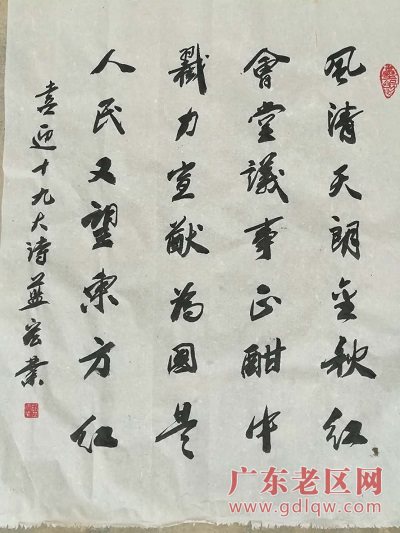 风清天朗金秋红
會堂議事正酣中
戮力宣猷为国是
人民又望东方红
喜迎十九大诗蓝宏業
广东老区网
www.gdlqw.com